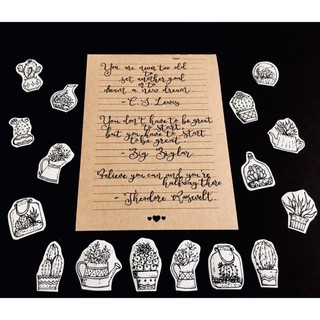 You are never too old
to
set another goal
to
dream a new dream
- C.S. Lewis
You don't have to be great
to start,
but you have to start
to be great.
- Zig Ziglar
Believe you can and you're
halfway there.
- Theodore Roosevelt.